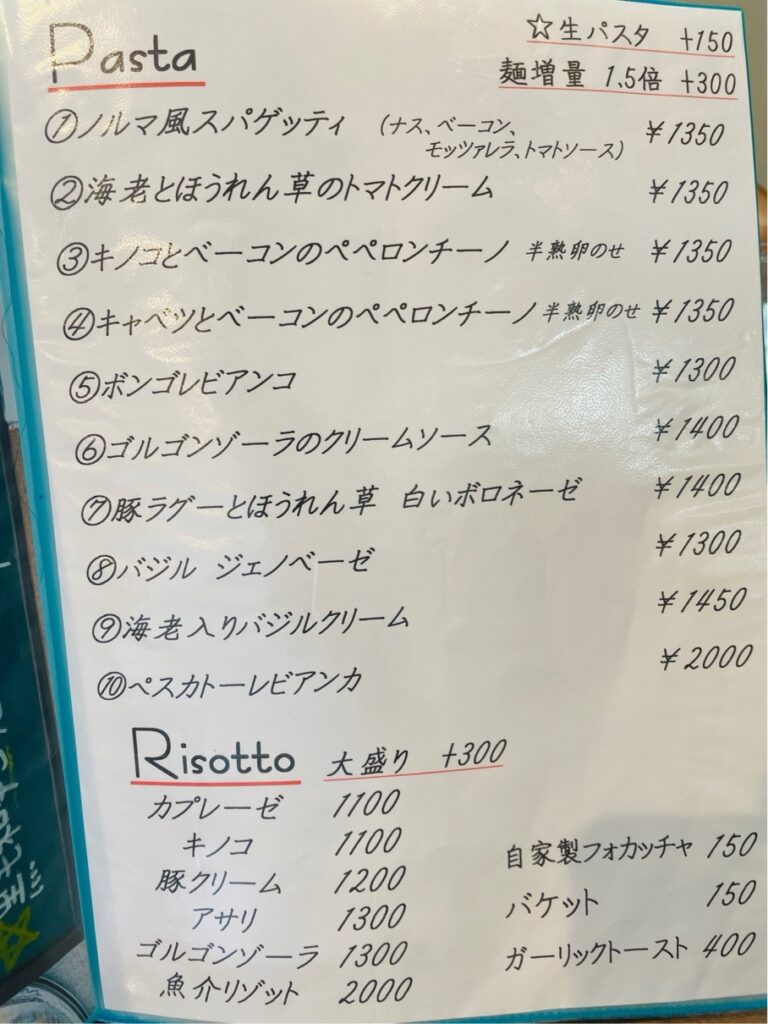 Pasta
☆生パスタ +150
麺増量 1.5倍 +300
①ノルマ風スパゲッティ (ナス、ベーコン、 ¥1350
モッツァレラ、トマトソース)
②海老とほうれん草のトマトクリーム ¥1350
③キノコとベーコンのペペロンチーノ 半熟卵のせ ¥1350
④キャベツとベーコンのペペロンチーノ 半熟卵のせ ¥1350
⑤ボンゴレビアンコ ¥1300
⑥ゴルゴンゾーラのクリームソース ¥1400
⑦豚ラグーとほうれん草 白いボロネーゼ ¥1400
⑧バジル ジェノベーゼ ¥1300
⑨海老入りバジルクリーム ¥1450
⑩ペスカトーレビアンカ ¥2000
Risotto 大盛り +300
カプレーゼ 1100
キノコ 1100
豚クリーム 1200
アサリ 1300
ゴルゴンゾーラ 1300
魚介リゾット 2000
自家製フォカッチャ 150
バケット 150
ガーリックトースト 400